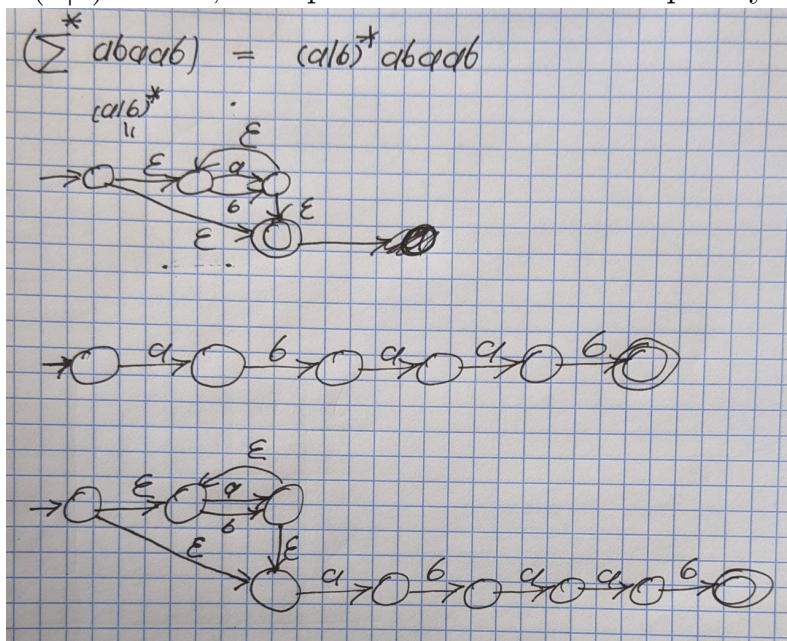 (Σ* abaab) = (a|b)* abaab
(a|b)*
ε
ε a
b ε
ε
a b a a b
ε
ε a
b
ε ε
a b a a b